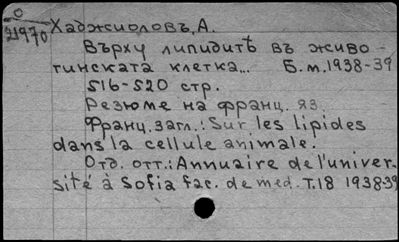 О
21970
Хаджиоловъ, А.
Върху липидитѣ въ живо-
тинската клетка... Б.м., 1938-39
516-520 стр.
Резюме на франц. яз.
Франц. загл.: Sur les lipides
dans la cellule animale.
Отд. отт.: Annuaire de l'univer.
sité à Sofia fac. de med. Т.18 1938-39